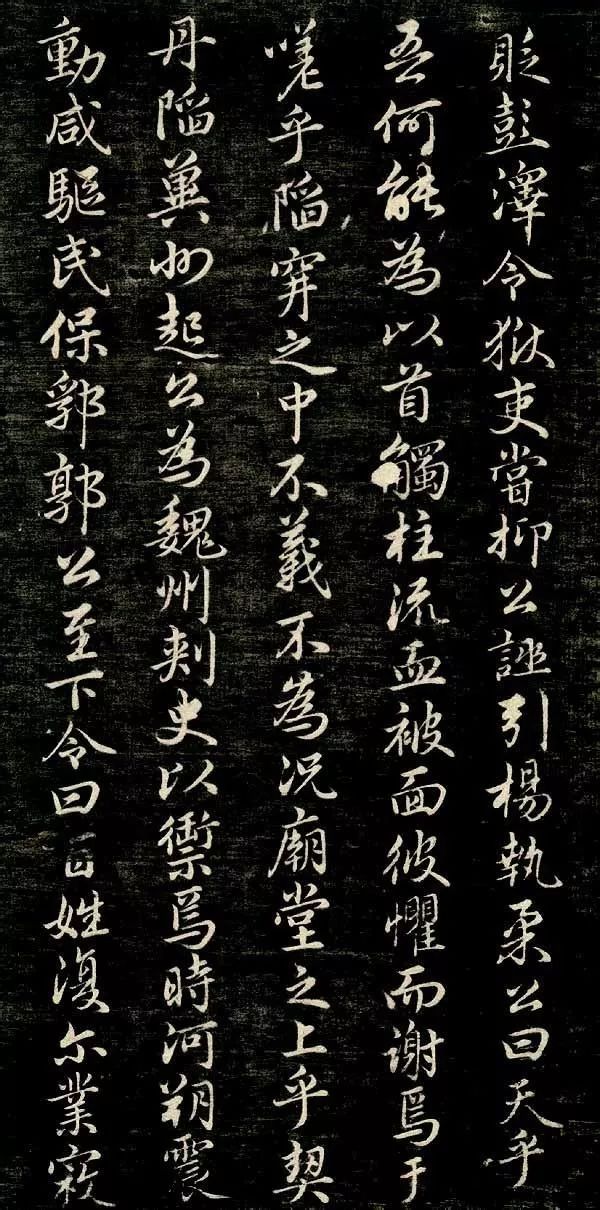 貶彭澤令獄吏嘗抑公誣引楊執柔公曰天乎
吾何能為以首觸柱流血被面彼懼而謝焉于
嗟乎陷穽之中不義不為況廟堂之上乎契
丹陷冀州起公為魏州刺史以禦焉時河朔震
動咸驅民保郛郭公至下令曰百姓復尒業寇